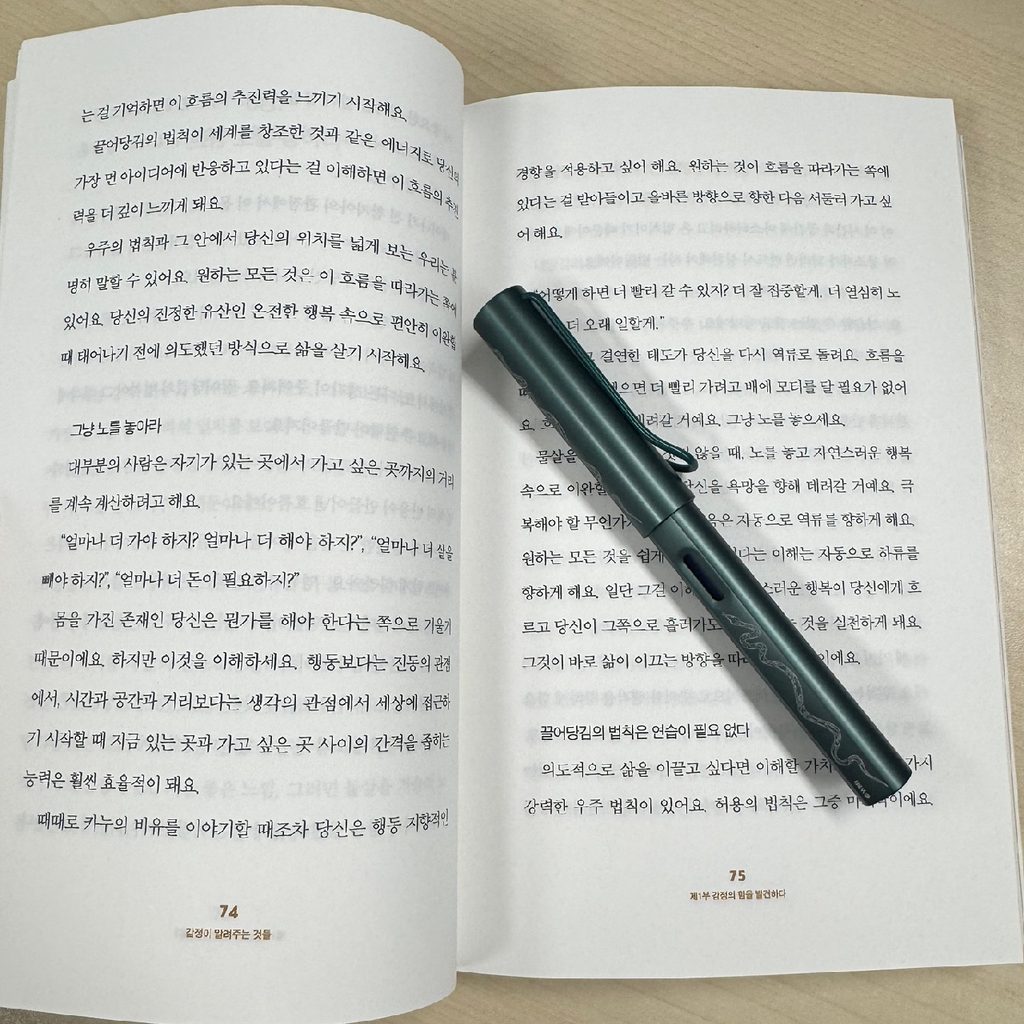 는 걸 기억하면 이 흐름의 추진력을 느끼기 시작해요.
끌어당김의 법칙이 세계를 창조한 것과 같은 에너지로 당신의
가장 먼 아이디어에 반응하고 있다는 걸 이해하면 이 흐름의 추진
력을 더 깊이 느끼게 돼요.
우주의 법칙과 그 안에서 당신의 위치를 넓게 보는 우리는 분
명히 말할 수 있어요. 원하는 모든 것은 이 흐름을 따라가는 쪽에
있어요. 당신의 진정한 유산인 온전한 행복 속으로 편안히 이완할
때 태어나기 전에 의도했던 방식으로 삶을 살기 시작해요.
그냥 노를 놓아라
대부분의 사람은 자기가 있는 곳에서 가고 싶은 곳까지의 거리
를 계속 계산하려고 해요.
“얼마나 더 가야 하지? 얼마나 더 해야 하지?”, “얼마나 더 살을
빼야 하지?”, “얼마나 더 돈이 필요하지?”
몸을 가진 존재인 당신은 뭔가를 해야 한다는 쪽으로 기울기
때문이에요. 하지만 이것을 이해하세요. 행동보다는 진동의 관점
에서, 시간과 공간과 거리보다는 생각의 관점에서 세상에 접근하
기 시작할 때 지금 있는 곳과 가고 싶은 곳 사이의 간격을 좁히는
능력은 훨씬 효율적이 돼요.
때때로 카누의 비유를 이야기할 때조차 당신은 행동 지향적인
74
감정이 알려주는 것들
경향을 적용하고 싶어 해요. 원하는 것이 흐름을 따라가는 쪽에
있다는 걸 받아들이고 올바른 방향으로 향한 다음 서둘러 가고 싶
어 해요.
“어떻게 하면 더 빨리 갈 수 있지? 더 잘 집중할게. 더 열심히 노
더 오래 일할게.”
걸연한 태도가 당신을 다시 역류로 돌려요. 흐름을
더 빨리 가려고 배에 모터를 달 필요가 없어
요. 데려갈 거예요. 그냥 노를 놓으세요.
물살을 않을 때, 노를 놓고 자연스러운 행복
속으로 이완할 당신을 욕망을 향해 데려갈 거예요. 극
복해야 할 무언가가 자동으로 역류를 향하게 해요.
원하는 모든 것을 쉽게 이해는 자동으로 하류를
향하게 해요. 일단 그걸 행복이 당신에게 흐
르고 당신이 그쪽으로 것을 실천하게 돼요.
그것이 바로 삶이 이끄는 방향을
끌어당김의 법칙은 연습이 필요 없다
의도적으로 삶을 이끌고 싶다면 이해할 가치 가시
강력한 우주 법칙이 있어요. 허용의 법칙은 그중
75
제1부 감정의 힘을 발견하다